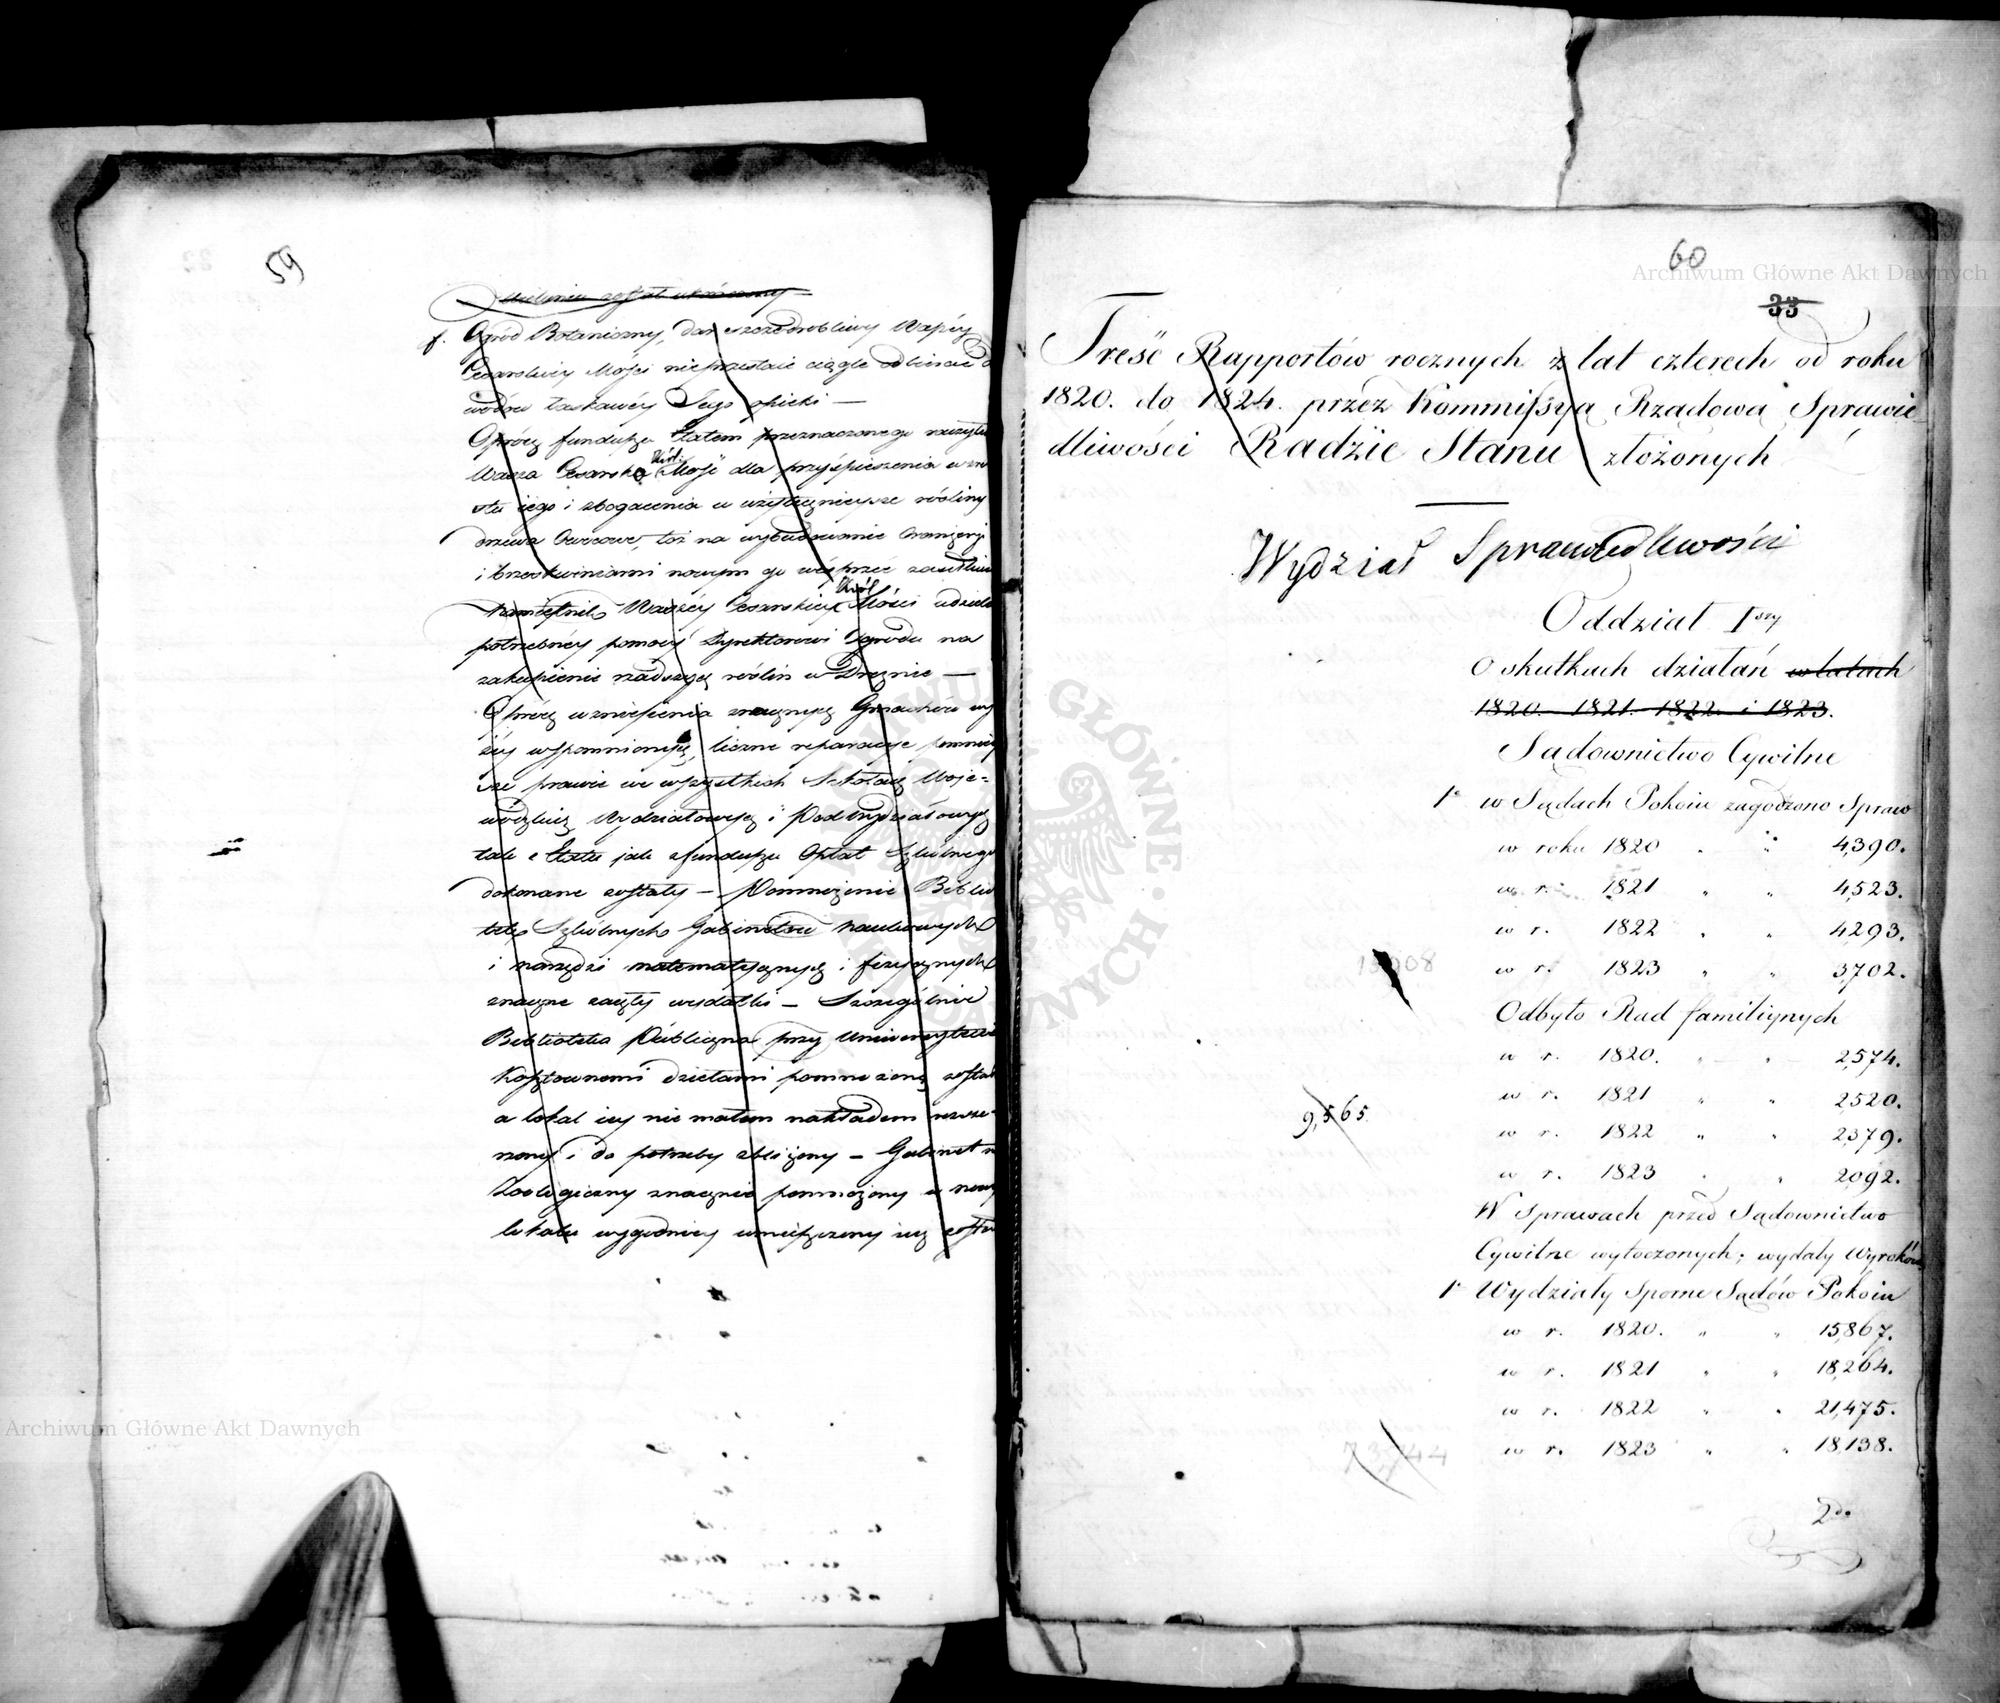 59
f. Ogród Botaniczny, dar szczodrobliwy Waszéy
Cesarskiéy Mości nieprzestaie ciągle odbierać
łaskawéy Jego opieki —
Oprócz funduszu Etatem przeznaczonego raczyła
Wasza Cesarska Król: Mość dla przyśpieszenia wzro
stu iego i zbogacenia w użytecznieysze rośliny
drzewa Owocowe, toż na wybudowanie Oranżeryi
i brzoskwiniami nowym go wesprzeć zasiłkiem
Namiestnik Waszéy Cesarskiéy Król Mości udzielił
potrzebnéy pomocy Dyrektorowi Ogrodu na
zakupienie rzadszych roślin w Dreznie —
Oprócz wzniesienia znacznych Gmachów wy
żéy wspomnionych, liczne reparacye pomniey
sze prawie we wszystkich Szkołach Woje=
wódzkich Wydziałowych i Podwydziałowych
tak z Etatu jak z funduszu Opłat Szkolnego
dokonane zostały — Pomnożenie Biblio
tek Szkólnych Gabinetów naukowych
i narzędzi matematycznych i fizycznych
znaczne zaięły wydatki — Szczególnie
Biblioteka Publiczna przy Uniwersytecie
Kosztownemi dziełami pomnożoną została
a lokal iey nie małem nakładem rozsze=
rzony i do potrzeby zbliżony — Gabinet
Zoologiczny znacznie pomnożony w nowym
lokalu wygodniey umieszczony iuż został
60
33
Treść Rapportów rocznych z lat czterech od roku
1820. do 1824. przez Kommissyą Rządową Sprawie
dliwości Radzie Stanu złożonych
Wydział Sprawiedliwości
Oddział Iszy
O skutkach działań w latach
1820. 1821. 1822. i 1823.
Sądownictwo Cywilne
1e w Sądach Pokoiu zagodzono Spraw
w roku 1820 " " 4,390.
w r. 1821 " " 4,523.
w r. 1822 " " 4,293.
w r. 1823 " " 3,702.
Odbyto Rad familiynych
w r. 1820. " " 2,574.
w r. 1821 " " 2,520.
9,565. w r. 1822 " " 2,379.
w r. 1823 " " 2,092.
W Sprawach przed Sądownictwo
Cywilne wytoczonych; wydały Wyroków
1e Wydziały Sporne Sądów Pokoiu
w r. 1820. " " 15,867.
w r. 1821 " " 18,264.
w r. 1822 " " 21,475.
w r. 1823 " " 18,138.
2do
Archiwum Główne Akt Dawnych
Archiwum Główne Akt Dawnych